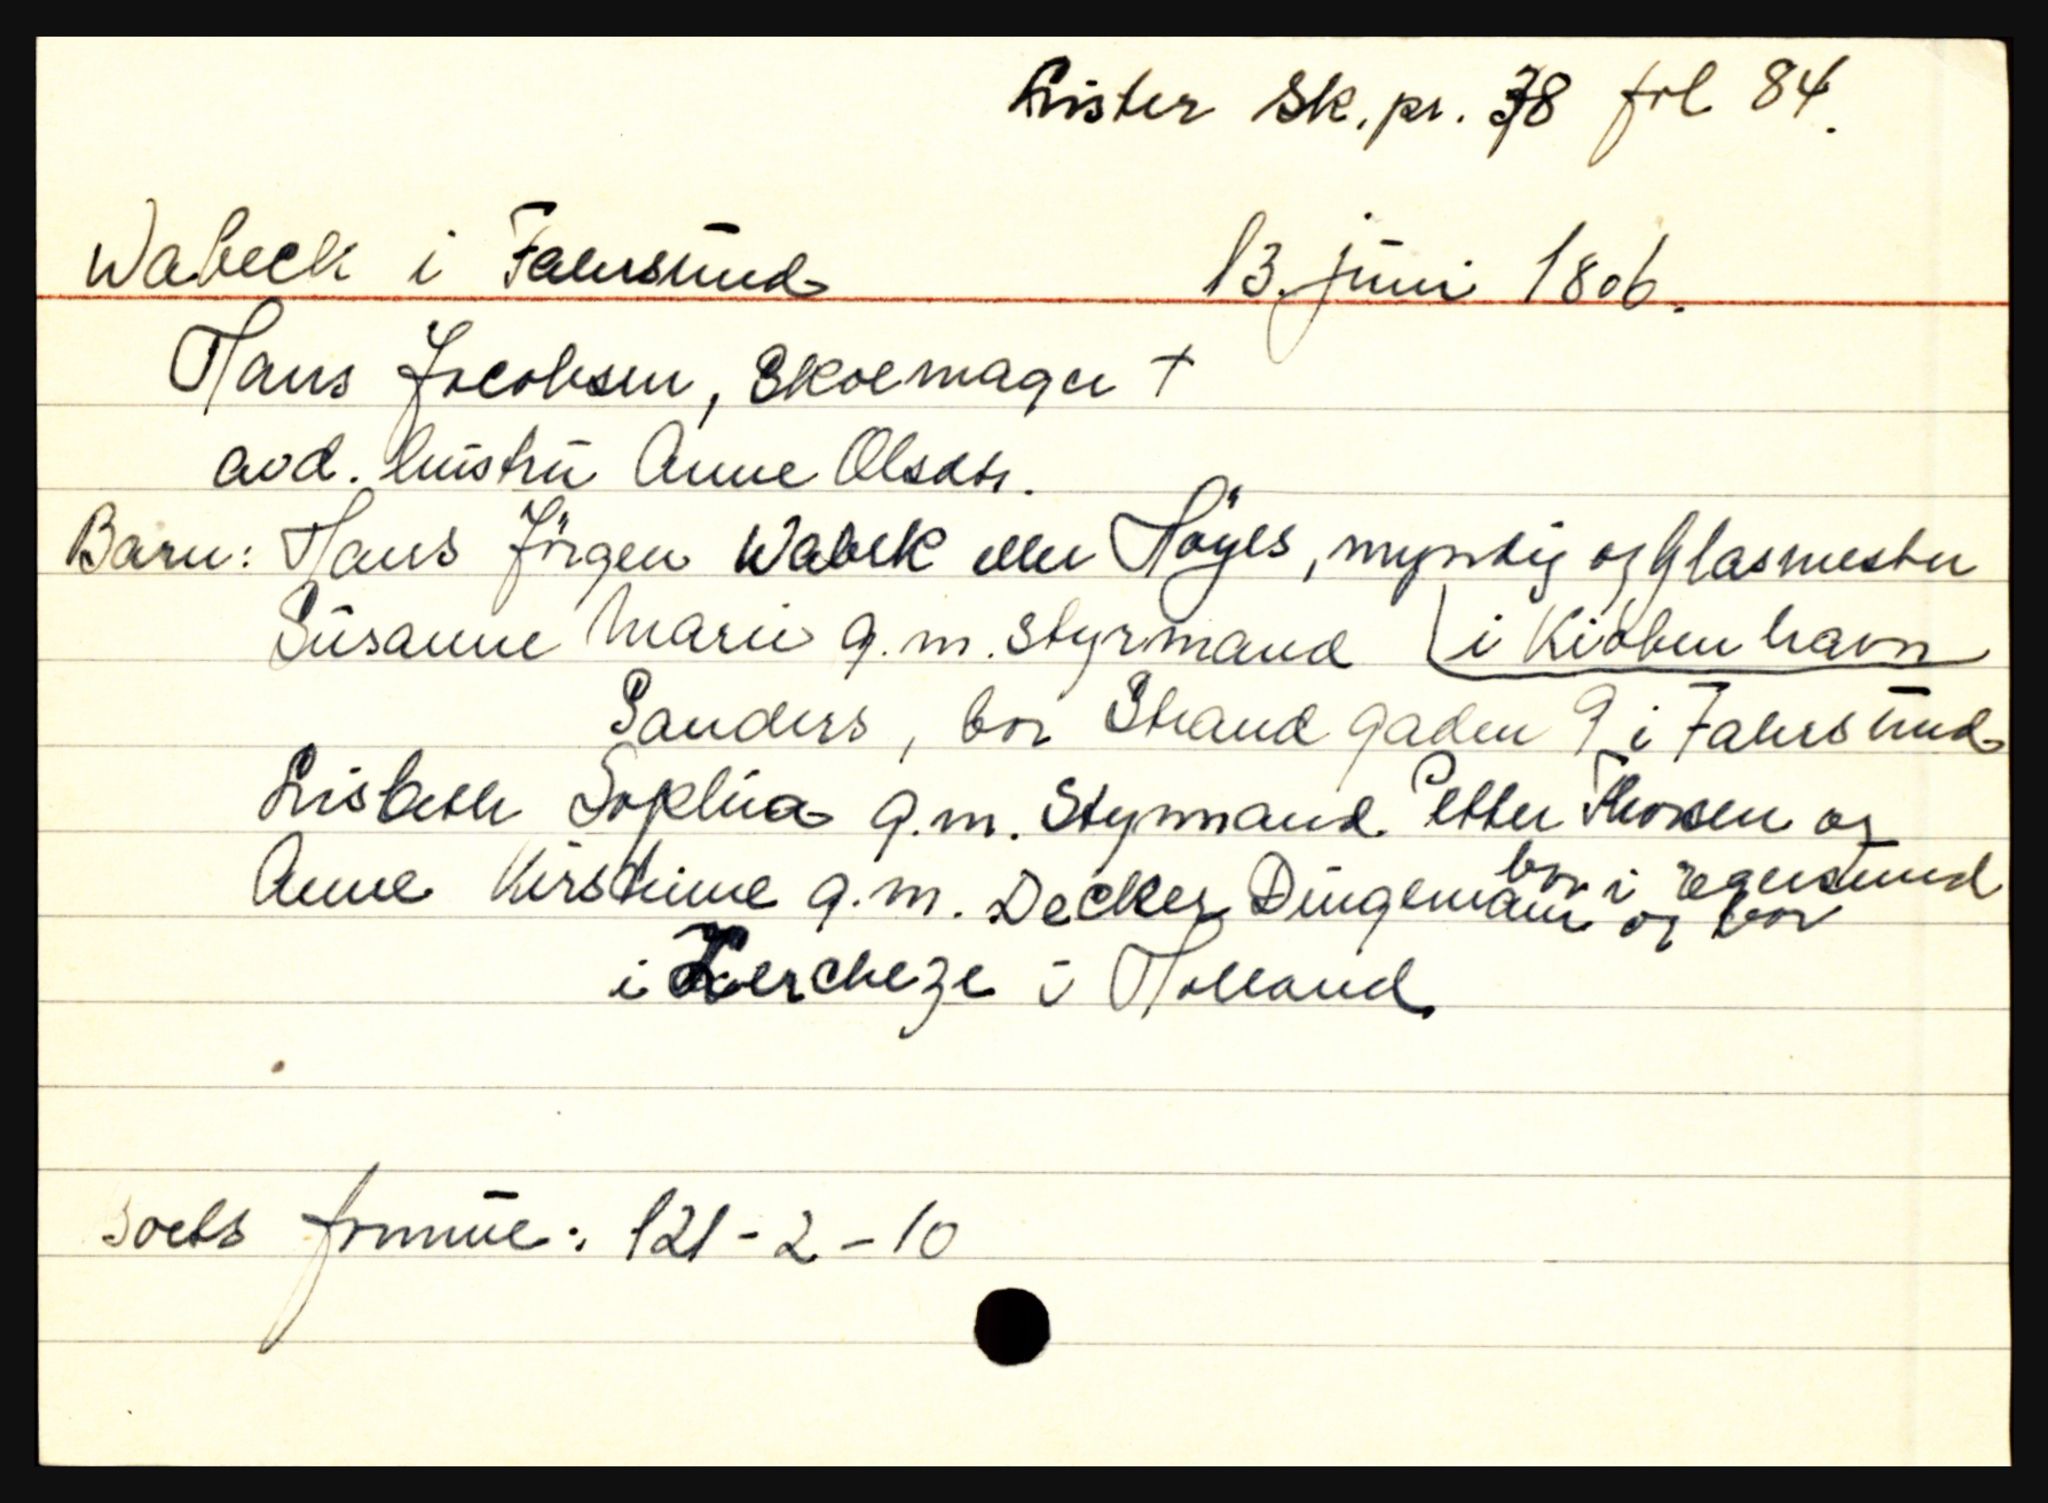 Lister Sk. pr. 38 fol 84.
Wabeck i Fahrsund 13. juni 1806.
Hans Jacobsen, Skoemager +
avd. hustru Anne Olsdtr.
Barn: Hans Jörgen Wabek eller Höyes, myndig og Glasmester
i Kiöbenhavn
Susanne Marie g. m. Styrmand
Sanders, bor Strand gaden 9 i Fahrsund
Lisbeth Sophia g. m. Styrmand Petter Thorsen og
bor i Egersund
Anne Kirstine g. m. Decker Dingemann og bor
i Zercheze i Holland.
boets formue: 121-2-10